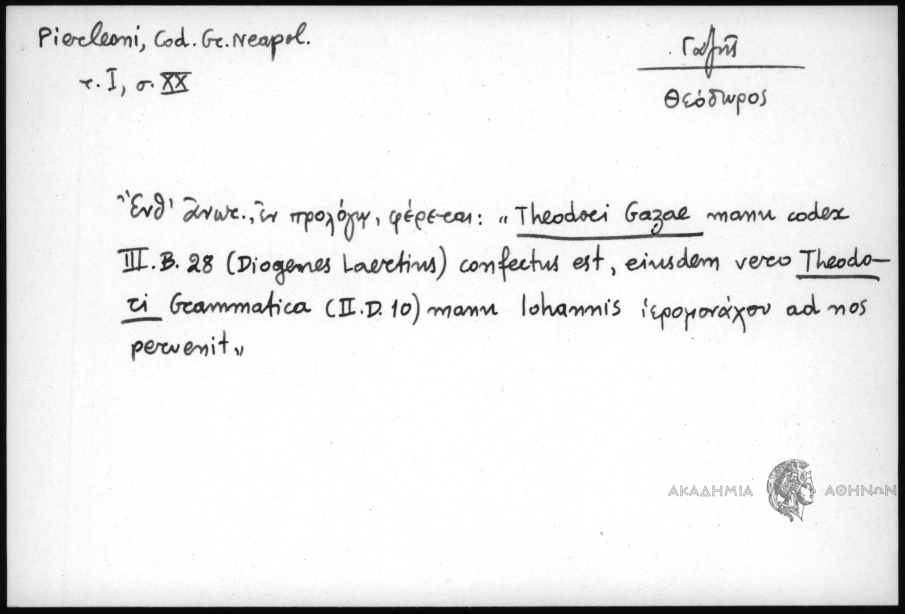 Pierleoni, Cod. Gr. Neapol.
τ. I, σ. XX
Γαζῆς
Θεόδωρος
Ἔνθ' ἄνωτ., ἐν προλόγῳ, φέρεται: „Theodori Gazae manu codex
III.B.28 (Diogenes Laertius) confectus est, eiusdem vero Theodo-
ri Grammatica (II.D.10) manu Iohannis ἱερομονάχου ad nos
pervenit„
ΑΚΑΔΗΜΙΑ ΑΘΗΝΩΝ